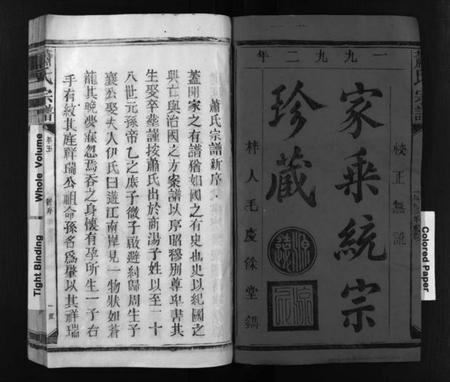 一九九二年
校正無訛
家乘統宗
珍藏
梓人毛慶餘堂鐫
Colored Paper
蕭氏宗譜
蕭氏宗譜新序
蓋聞家之有譜猶如國之有史也史以紀國之
興亡與治國之方案譜以序昭穆別尊卑書其
生娶卒塟謹按蕭氏出於商湯子姓以至二十
八世元孫帝乙之庶子微子啟避紂歸周生子
襄公娶夫人伊氏曰遊江南岸見一物狀如蒼
龍其晚夢寐忽焉吞之身懷有孕所生一子右
手有紋其座祥瑞公祖命孫名為肇以其祥瑞
蕭氏宗譜
新序
Whole Volume
Tight Binding